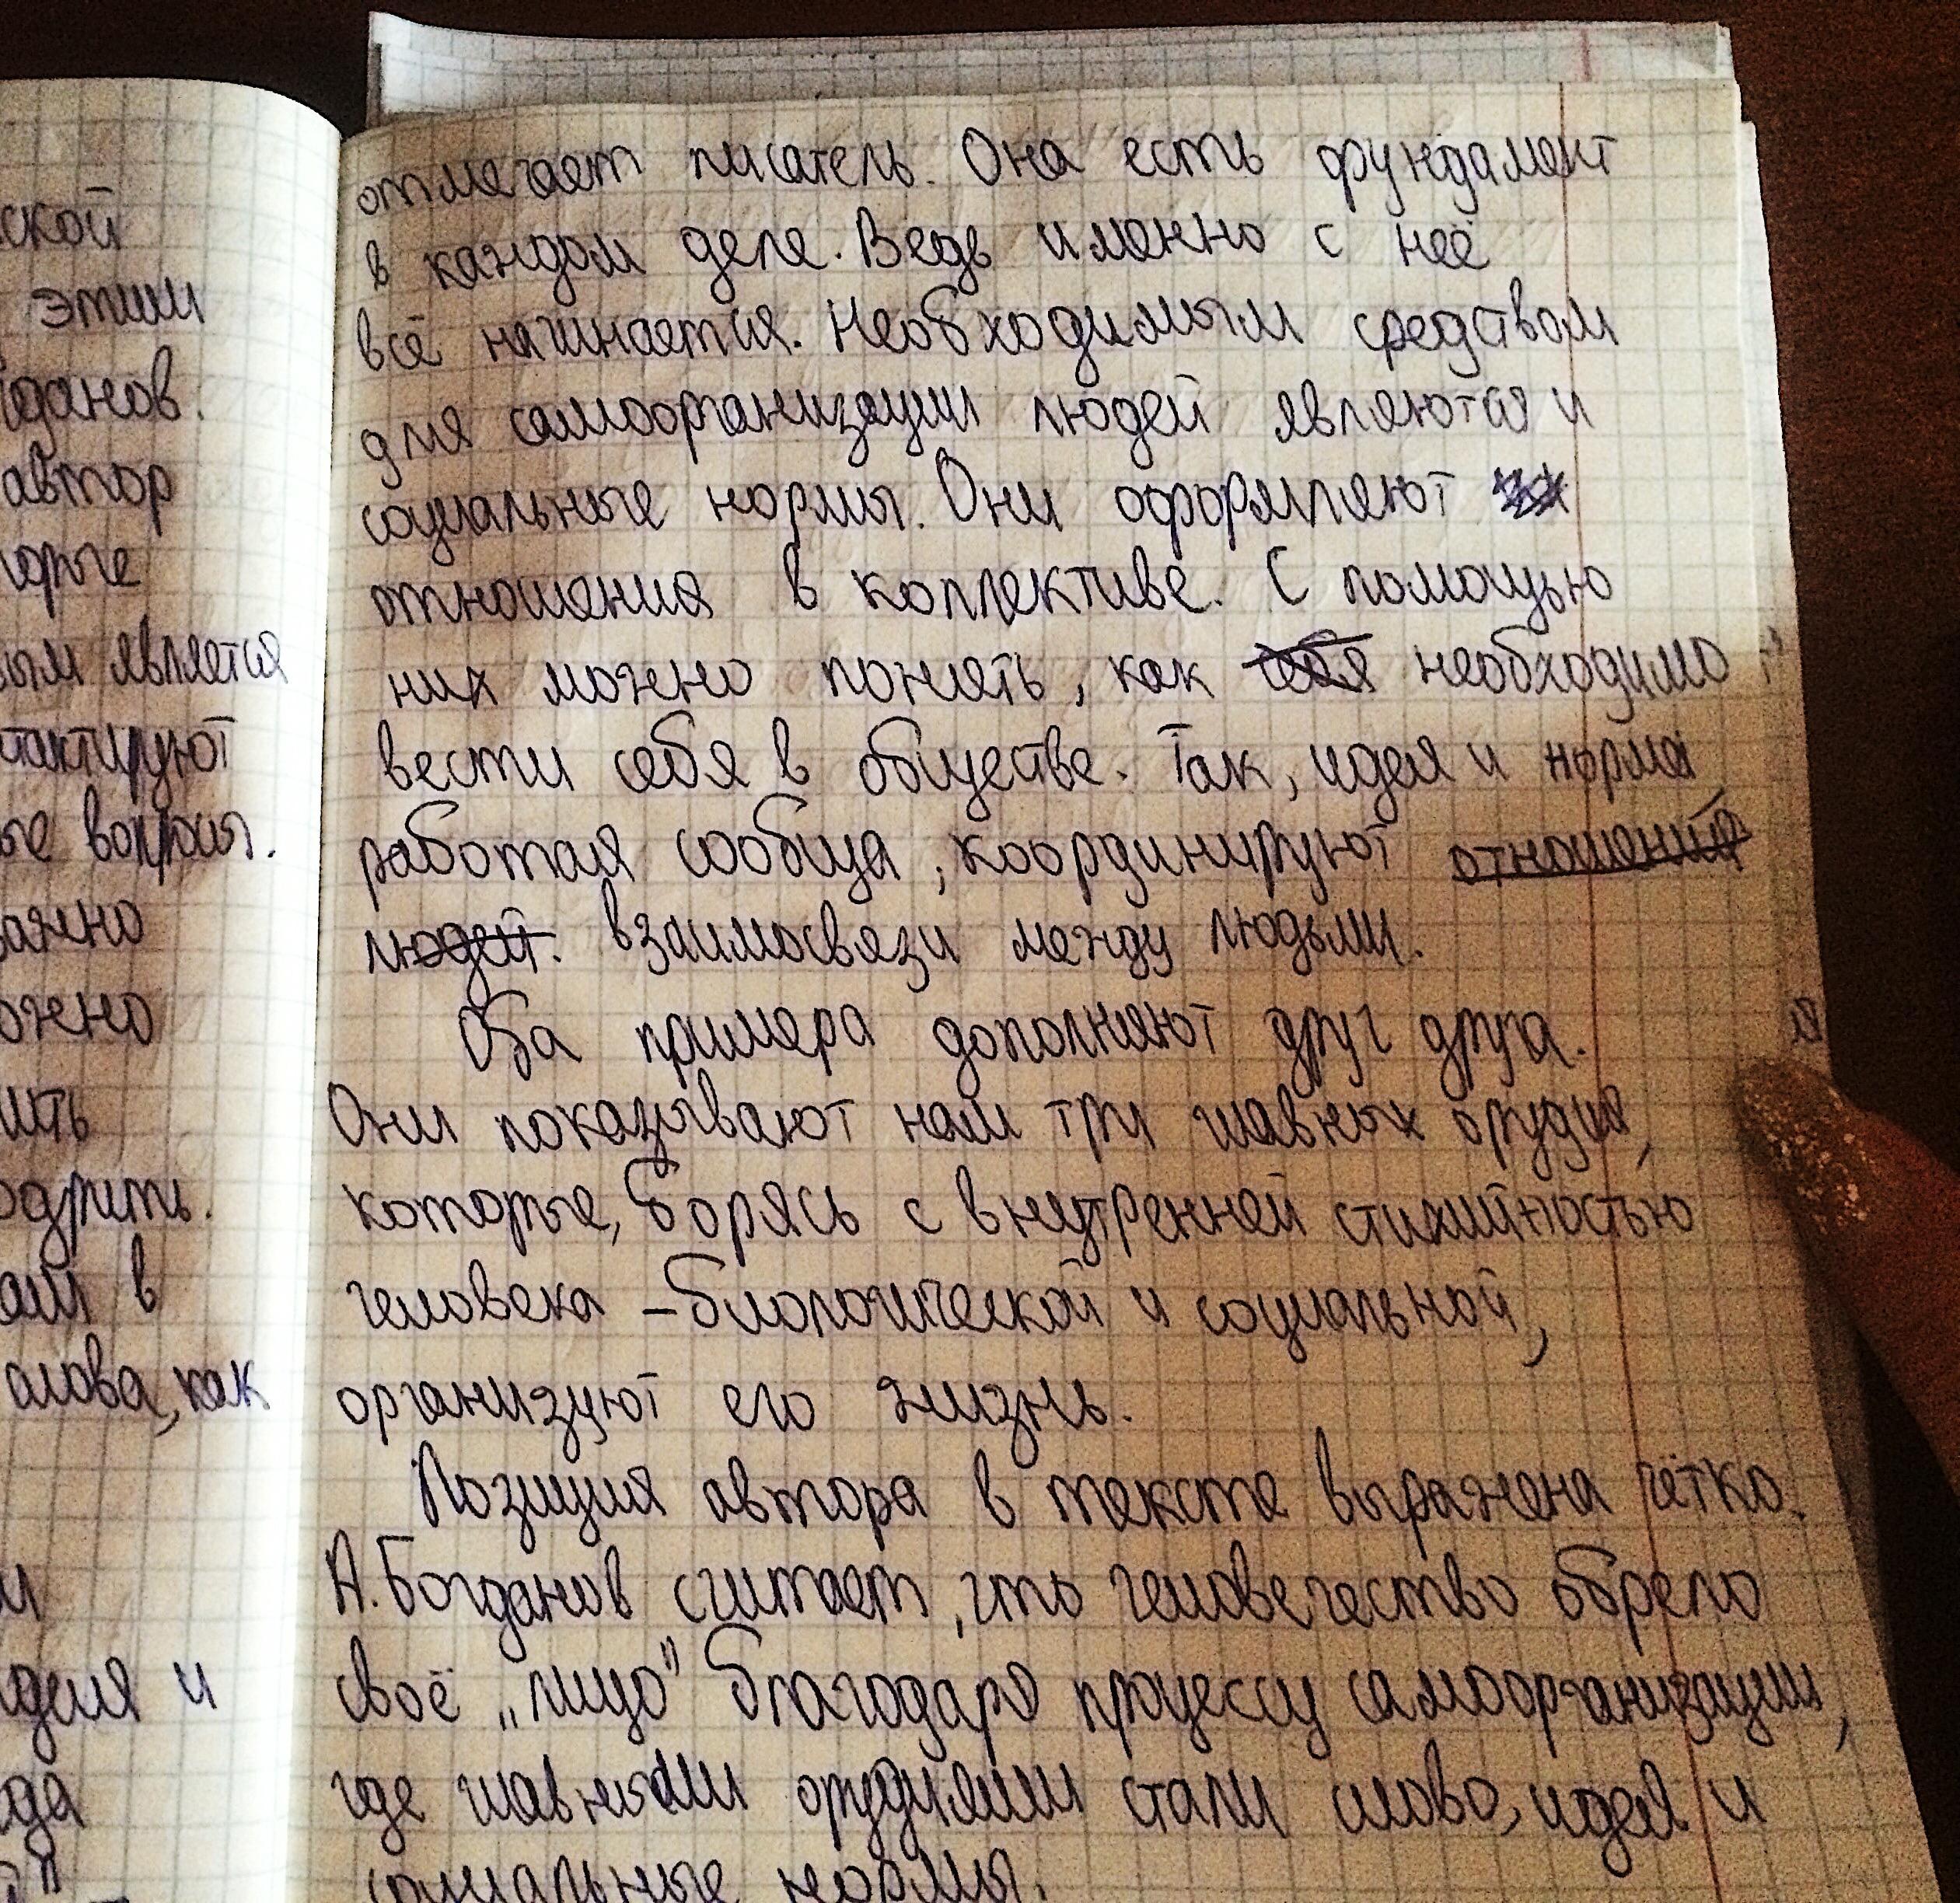 ской
этим
гданов.
автор
торые
ным является
нтактируют
ые вопросы.
важно
ожно
ить
одрить.
ами в
слова, как
и
идея и
да
отмечает писатель. Она есть фундамент
в каждом деле. Ведь именно с неё
всё начинается. Необходимым средством
для самоорганизации людей являются и
социальные нормы. Они оформляют
отношения в коллективе. С помощью
них можно понять, как себя необходимо
вести себя в обществе. Так, идея и норма,
работая сообща, координируют отношения
людей. взаимосвязи между людьми.
Оба примера дополняют друг друга.
Они показывают нам три главных орудия,
которые, борясь с внутренней стихийностью
человека - биологической и социальной,
организуют его жизнь.
Позиция автора в тексте выражена чётко.
А. Богданов считает, что человечество обрело
своё „лицо" благодаря процессу самоорганизации,
где главными орудиями стали слово, идея и
социальные нормы.